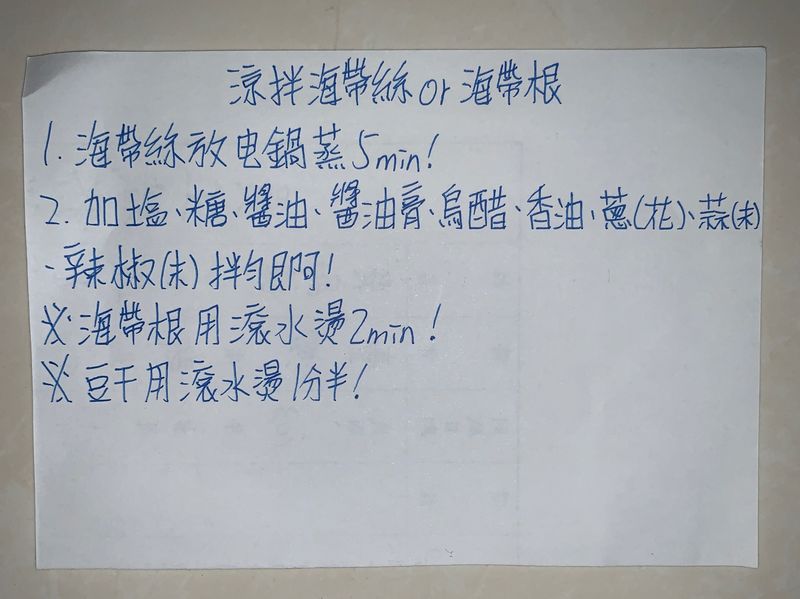 涼拌海帶絲or海帶根
1. 海帶絲放电鍋蒸5min!
2. 加塩、糖、醬油、醬油膏、烏醋、香油、蔥(花)、蒜(末)
、辣椒(末)拌勻即可!
※海帶根用滾水燙2min!
※豆干用滾水燙1分半!